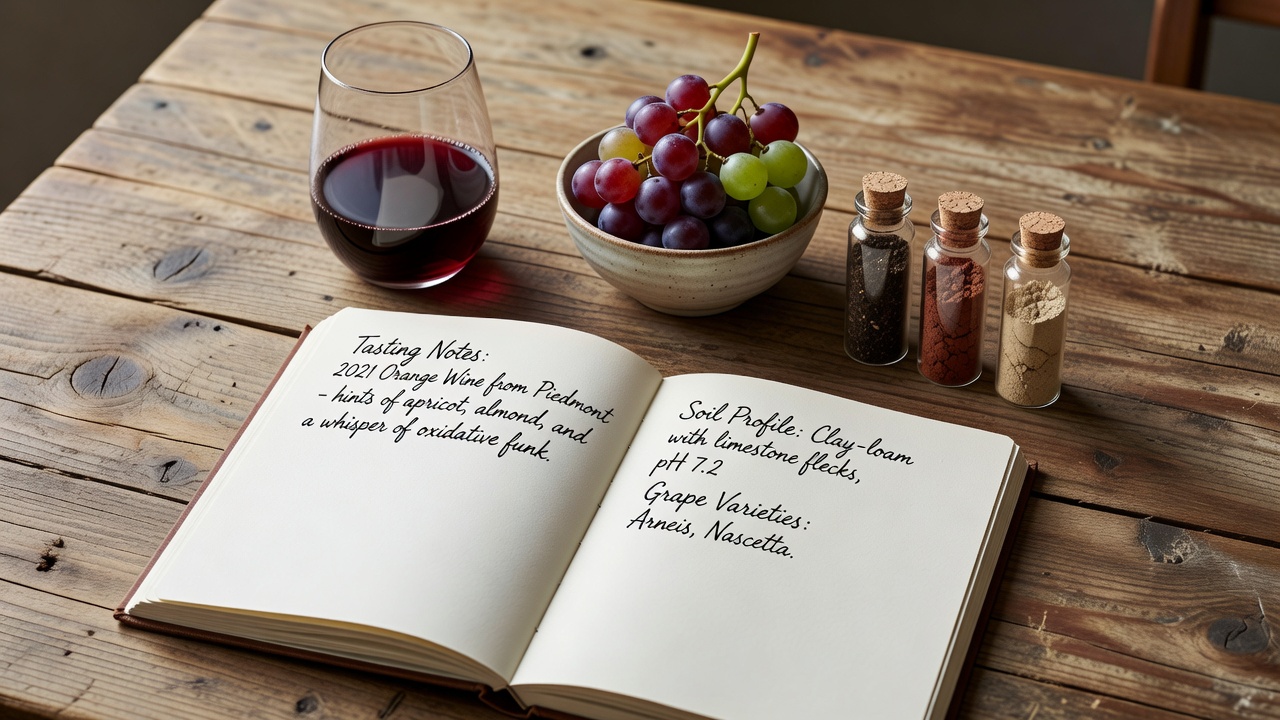 Tasting Notes:
2021 Orange Wine from Piedmont
- hints of apricot, almond, and
a whisper of oxidative funk.
Soil Profile: Clay-loam
with limestone flecks,
pH 7.2
Grape Varieties:
Arneis, Nascetta.